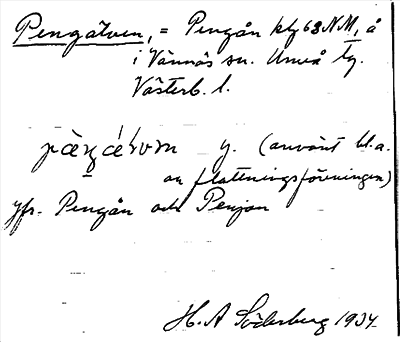 Pengälven, = Pengån ktg 63 NM, å
i Vännäs sn. Umeå tg.
Västerb. l.
y. (använt bl.a.
av flottningsföreningen)
Jfr. Pengån och Penjan
H. A Söderberg 1934.